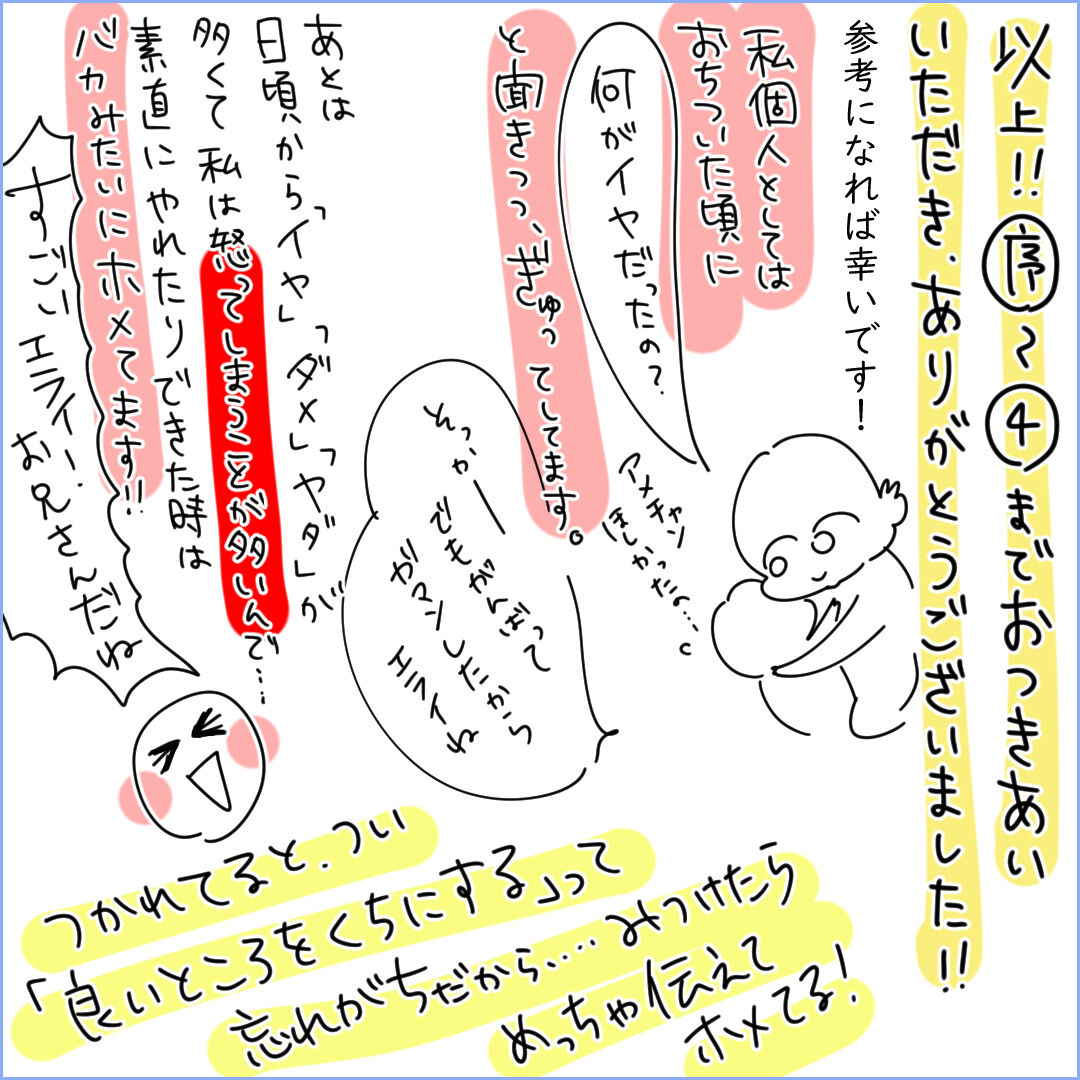 以上!!序~4までおつきあい
いただき、ありがとうございました!!
参考になれば幸いです!
私個人としては
おちついた頃に
何がイヤだったの?
と聞きつつ、ぎゅってしてます。
アメチャン
ほしかったの…
そっかー
でもがんばって
ガマンしたから
エライね
あとは
日頃から「イヤ」「ダメ」「ヤダ」が
多くて私は怒ってしまうことが多いんで…
素直にやれたりできた時は
バカみたいにホメてます!!
すごいエライー!
お兄さんだね
つかれてると、つい
「良いところをくちにする」って
忘れがちだから…みつけたら
めっちゃ伝えて
ホメてる!